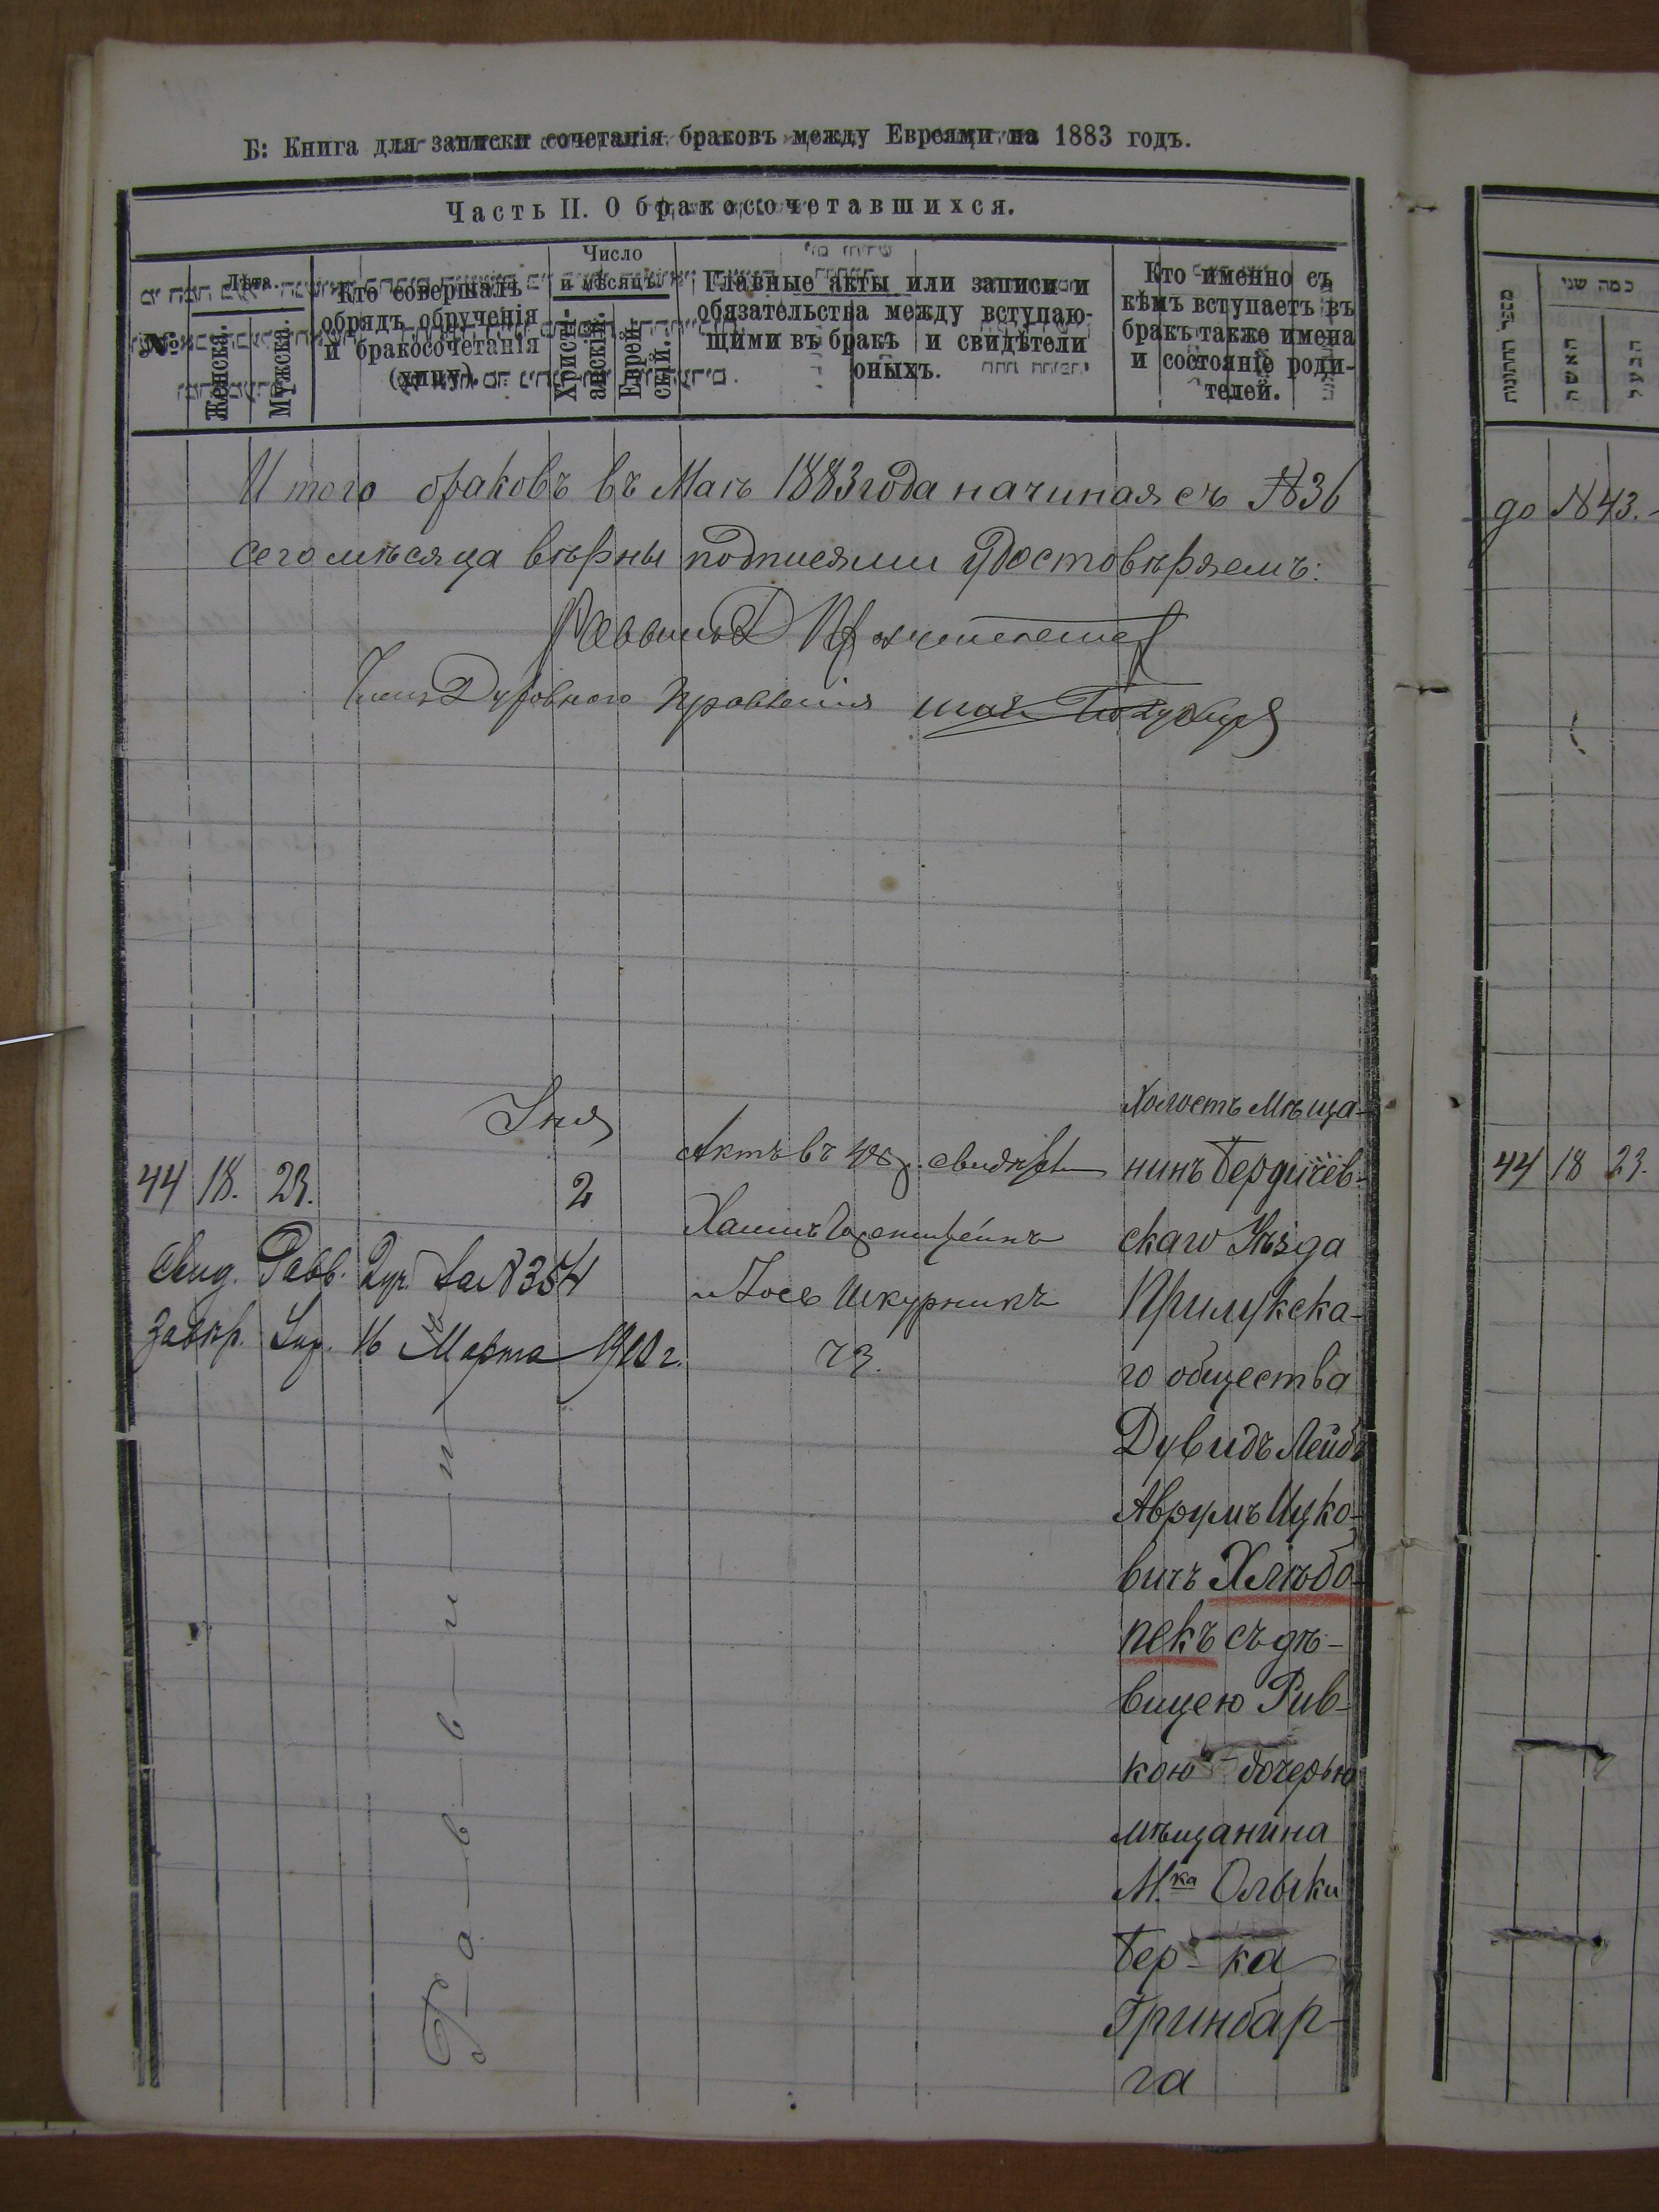 Б: Книга для записки сочетанія браковъ между Евреями на 1883 годъ.
Часть II. О бракосочетавшихся.
№
Лѣта.
Женска.
Мужска.
Кто совершалъ
обрядъ обрученія
и бракосочетанія
(хипу).
Число
и мѣсяцъ.
Христі-
анскій.
Еврей-
скій.
Главные акты или записи и
обязательства между вступаю-
щими въ бракъ и свидѣтели
оныхъ.
Кто именно съ
кѣмъ вступаетъ въ
бракъ также имена
и состояніе роди-
телей.
מספר החתונות
כמה שני
האשה
הבעל
Итого браковъ въ Маѣ 1883 года начиная съ №36
до №43.
сего мѣсяца вѣрны подписями удостовѣряемъ:
Раввинъ
Членъ Духовнаго Правленія
Іюня
44 18. 23.
2
Свид. Равв. за №354
16 Марта 1910 г.
Раввинъ
Актъ въ
Хаимъ
и Іосъ Шкурникъ
ч3.
Холостъ Мѣща-
нинъ Бердичев-
скаго Уѣзда
Прилукска-
го общества
Дувидъ Лейбъ
Аврумъ Ицко-
вичъ Хлѣбо-
пекъ съ дѣ-
вицею Рив-
кою дочерью
мѣщанина
М.ка Олыки
Бер-ка
Гринбар-
га
44 18 23.